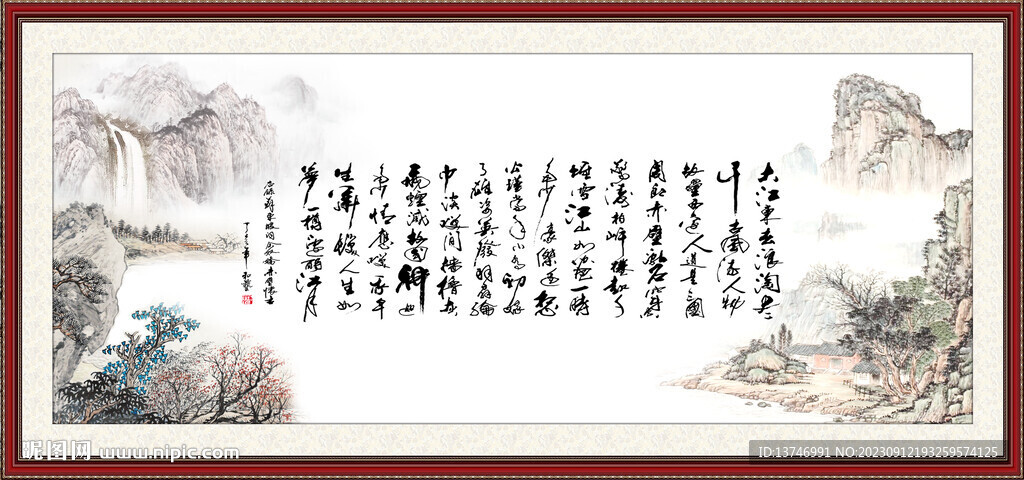 大江東去浪淘盡
千古風流人物
故壘西邊人道是三國
周郎赤壁亂石穿
驚濤拍岸捲起千
堆雪江山如畫一時
多少豪傑遙想
公瑾當年小喬初嫁
了雄姿英發羽扇綸
巾談笑間檣櫓灰
飛煙滅故國神也
多情應笑我早
生華髮人生如
夢一樽還酹江月
錄蘇東坡詞念奴嬌赤壁懷古
昵图网 www.nipic.com
ID:13746991 NO:20230912193259574125